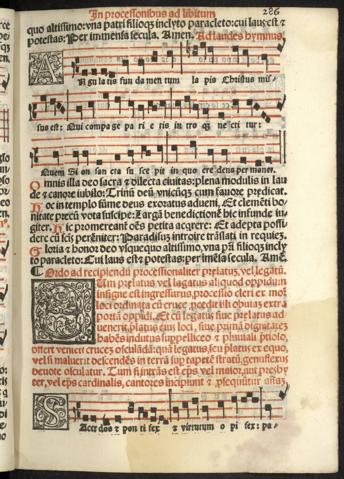 In processionibus ad libitum 286
quo altissimo: vna patri filioq̃ inclyto paracleto: cui laus est &
potestas: Per immensa secula. Amen. Ad laudes hymnus.
A N gu la tis fun da men tum la pis Christus mis-
sus est: Qui compa ge pa ri e tis in tro q̃ ne cti tur:
Quem Si on san cta su sce pit in quo cre dens per manet.
Omnis illa deo sacra & dilecta ciuitas: plena modulis in lau
de & canore iubilo: Trinũ deũ vnicũq̃ cum fauore predicat.
Hoc in templo sũme deus exoratus adueni. Et clementi bo
nitate precũ vota suscipe: Largã benedictionẽ hic infunde iu
giter. Hic promereant oẽs petita acqrere: Et adepta possi
dere cũ scis perẽniter: Paradisuz introire trãslati in requiez.
Gloria & honor deo vsquequo altissimo, vna pr̃i filioq̃ incly
to paracleto: Cui laus est & potestas: per im̃ẽsa secula. Amẽ.
Ordo ad recipiendũ processionaliter prelatuz, vel legatũ.
Cum prelatus vel legatus aliquod oppidum
insigne est ingressurus, processio cleri ex mo
loci ordinata cũ cruce, pcedit ei obuiaz extra
portã oppidi. Et cũ legatus siue prelatus ad
uenerit, platus eius loci, siue primã dignitatez
habẽs indutus suppelliceo & pluuiali p̃cioso,
offert veneri crucẽ osculãdã: quã legatus, seu platus ex equo,
vel si maluerit descẽdẽs in terrã sup tapetẽ stratũ, genuflexus
deuote osculatur. Tum si intrãs est ep̃s, vel maior, aut presby
ter, vel ep̃s cardinalis, cantores incipiunt & p̃sequũtur añaz
S Acer dos & pon ti fex & virtutum o pi fex: pa-